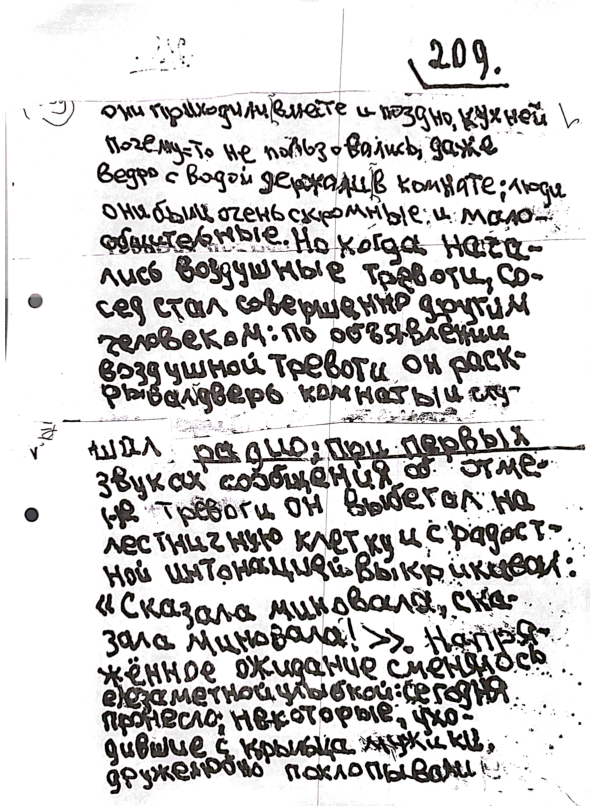 209.
они приходили вместе и поздно, кухней
почему-то не пользовались, даже
ведро с водой держали в комнате; люди
они были очень скромные и мало-
общительные. Но когда нача-
лись воздушные тревоги, со-
сед стал совершенно другим
человеком: по объявлении
воздушной тревоги он раск-
рывал дверь комнаты и слу-
шал радио; при первых
звуках сообщения об отме-
не тревоги он выбегал на
лестничную клетку и с радост-
ной интонацией выкрикивал:
«Сказала миновала, ска-
зала миновала!». Напря-
жённое ожидание сменялось
незаметной улыбкой: сегодня
пронесло; некоторые, ухо-
дившие с крыльца мужики,
дружелюбно похлопывали